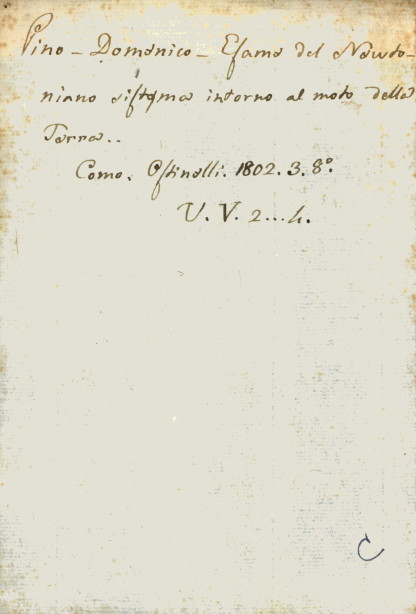 Pino - Domenico - Esame del Newto-
niano sistema intorno al moto della
Terra..
Como. Ostinelli. 1802. 3. 8°.
V. V. 2...4.
C